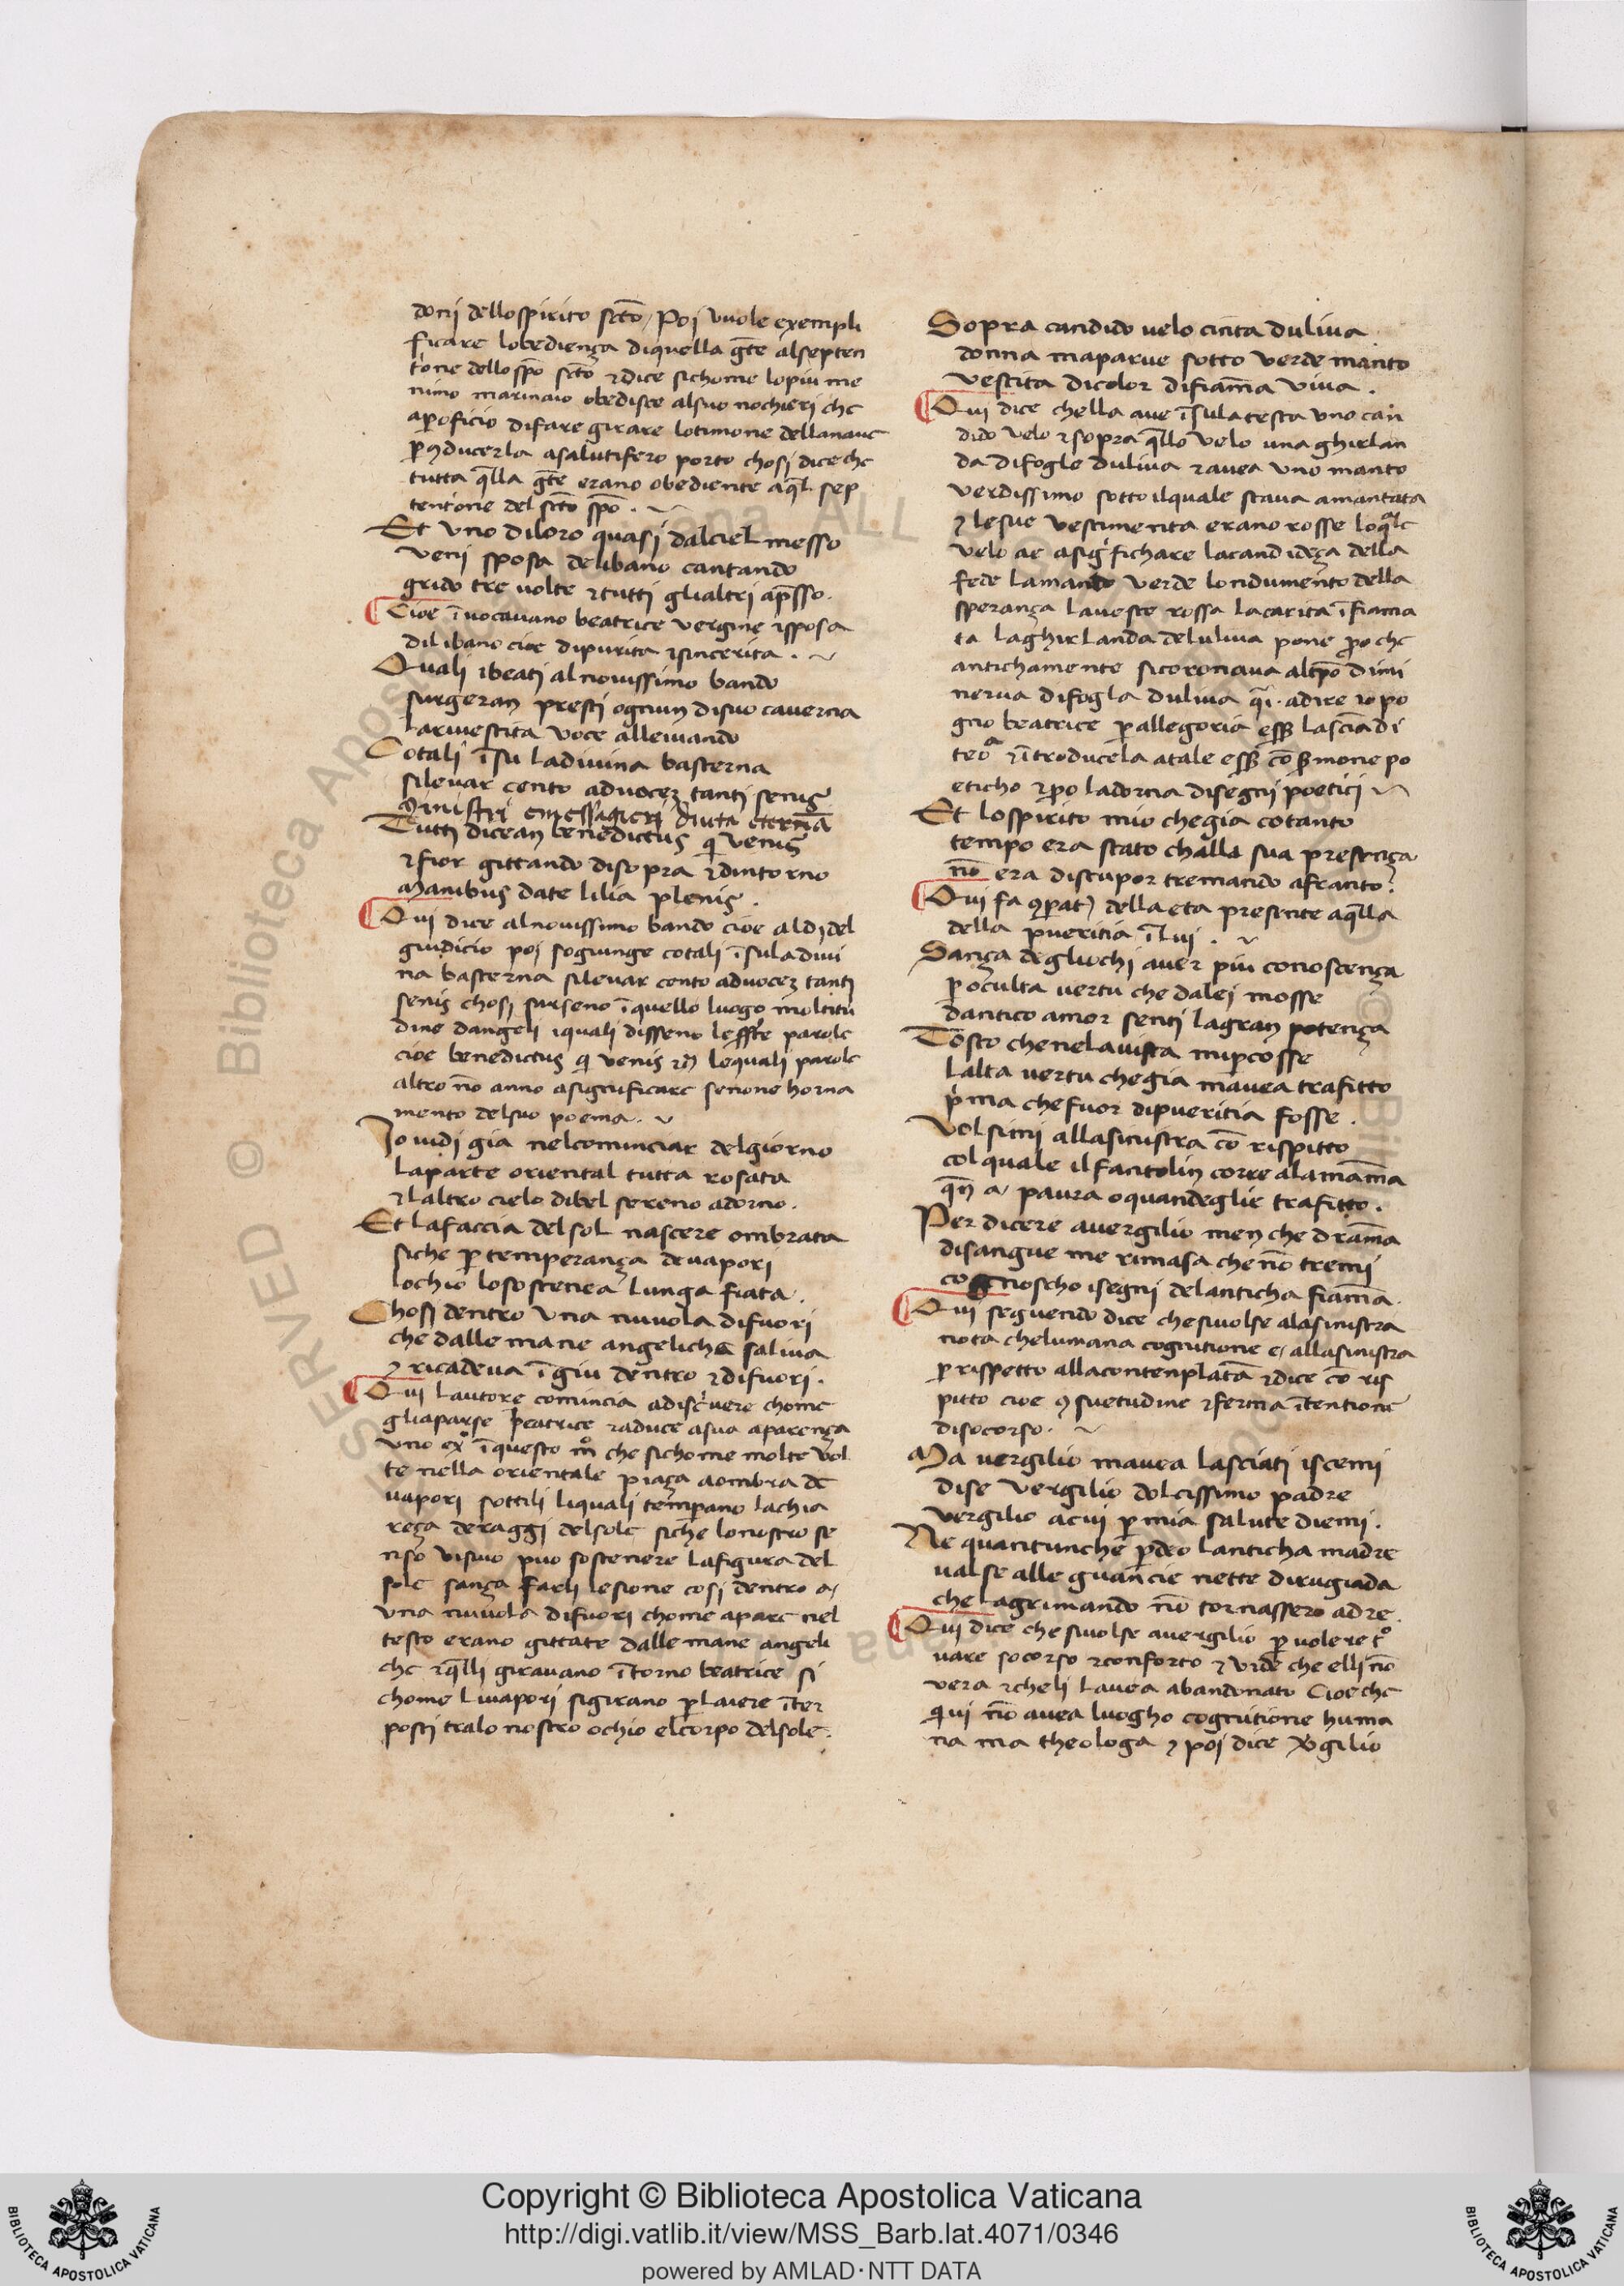 donj dello spirito scto / Poj vuole exempli
ficare lobediença diquella gēte alsepten
trone dello spō scto ⁊dice sichome lopiu me
nimo marinaio obedisce alsuo nochieri che
aꝑ oficio difare girare lotimone dellanave
ꝑ ꝯducerla asalutifero porto chosj dice che
tutta q̄lla gēte erano obediente aq̄l sep
tentrone del scto spō .
Et uno diloro quasj dalciel messo
venj sposa delibano cantando
grido tre uolte ⁊tuttj glialtrj ap̄sso.
Cioe ī uocauano beatrice vergine ⁊sposa
dilibano cioe dipurita ⁊sincerita .
Quali ibeatj alnouissimo bando
surgeran prestj ognun disuo cauerna
lariuestita uoce alleuiando
Cotali īsu ladiuina basterna
sileuar cento aduoceʒ tantj senis
Ministrj emessagierj diuita eternā
Tuttj dicean benedictus q̄ venis
⁊fior gittando disopra ⁊dintorno
Manibus date lilia plenis .
Qui dice alnouissimo bando cioe aldj del
giudicio poj sogiunge cotali īsuladiui
na basterna sileuar cento aduoceʒ tantj
senis chosj surseno ī quello luogo moltitu
dine dangeli iquali disseno le sste parole
cioe benedictus q̄ venis ⁊c lequali parole
altro nō anno asignificare senone horna
mento delsuo poema .
Io uidi gia nelcominciar delgiorno
laparte oriental tutta rosata
⁊laltro cielo dibel sereno adorno .
Et lafaccia delsol nascere ombrata
siche ꝑ temperança deuaporj
lochio losostenea lunga fiata .
Chosj dentro una nuuola difuori
che dalle mane angeliche saliua
⁊ ricadeua ī giu dentro ⁊difuori .
Qui lautore comincia adiscriuere chome
gliaparse beatrice ⁊aduce asua aparença
uno exo ī questo mo che sichome molte vol
te nella orientale piaça aombra de
uapori sottili liquali temperano lachia
reça deraggi delsole siche lonostro se
nso visiuo puo sostenere lafigura del
sole sança farli lesione cosi dentro a/
una nuuola difuori chome apare nel
testo erano gittate dalle mane angeli
che ⁊q̄lli girauano ītorno beatrice si
chome liuapori sigirano ꝑ laiere īter
postj tralo nostro ochio elcorpo delsole .
Sopra candido uelo cinta duliua
donna maparue sotto verde manto
vestita dicolor difiam̄a viua .
Qui dice chella aue īsulatesta uno can
dido velo ⁊sopra q̄llo velo una ghirlan
da difogle duliua ⁊auea uno manto
verdissimo sotto ilquale staua amantata
⁊ lesue vestimenta erano rosse loq̄le
velo ae asigfichare lacandideça della
fede lamanto verde londumento della
sperança laueste rossa lacarita īfiama
ta laghirlanda deluliua pone ꝑo che
antichamente sicoronaua altpō dimi
nerua difogla duliua q̄i . adire io po
gno beatrice ꝑ allegoria essē lasciādi
teoa ⁊ītroducela atale essē cō s̄mone po
eticho ⁊ꝑo ladorna disegnj poeticj
Et lospirito mio chegia cotanto
tempo era stato challa sua presença
nō era distupor tremando afranto .
Qui fa ꝯꝑat della eta presente aq̄lla
della pueritia ī lui .
Sança deglochi auer piu conoscença
ꝑ oculta uertu che dalej mosse
dantico amor sentj lagran potença
Tosto chenelauista miꝑcosse
lalta uertu chegia mauea trafitto
p̄ma chefuor dipueritia fosse .
Volsimi allasinistra cō rispitto
col quale ilfantolin corre alamam̄a
q̄n a paura oquandeglie trafitto .
Per dicere auergilio men che dram̄a
disangue me rimasa che nō tremi
cognoscho isegnj delanticha fiam̄a .
Qui seguendo dice chesiuolse alasinistra
nota chelumana cognitione e/ allasinistra
ꝑ rispetto allacontenplatā ⁊dice cō ris
pitto cioe ꝯsuetudine ⁊ferma ītentione
disocorso .
Ma uergilio mauea lasciatj iscemi
dise vergilio dolcissimo padre
vergilio acui ꝑ mia salute diemi .
Ne quantunche ꝑdeo lanticha madre
ualse alle guancie nette dirugiada
che lagrimando nō tornassero adre .
Qui dice che siuolse auergilio ꝑ uolere to
uare socorso ⁊conforto ⁊ vide che elli nō
vera ⁊cheli lauea abandonato Cioe che
quiui nō auea luogho cognitione huma
na ma theologa ⁊ poj dice v̄gilio
Copyright © Biblioteca Apostolica Vaticana
http://digi.vatlib.it/view/MSS_Barb.lat.4071/0346
powered by AMLAD·NTT DATA
BIBLIOTECA APOSTOLICA VATICANA
BIBLIOTECA APOSTOLICA VATICANA